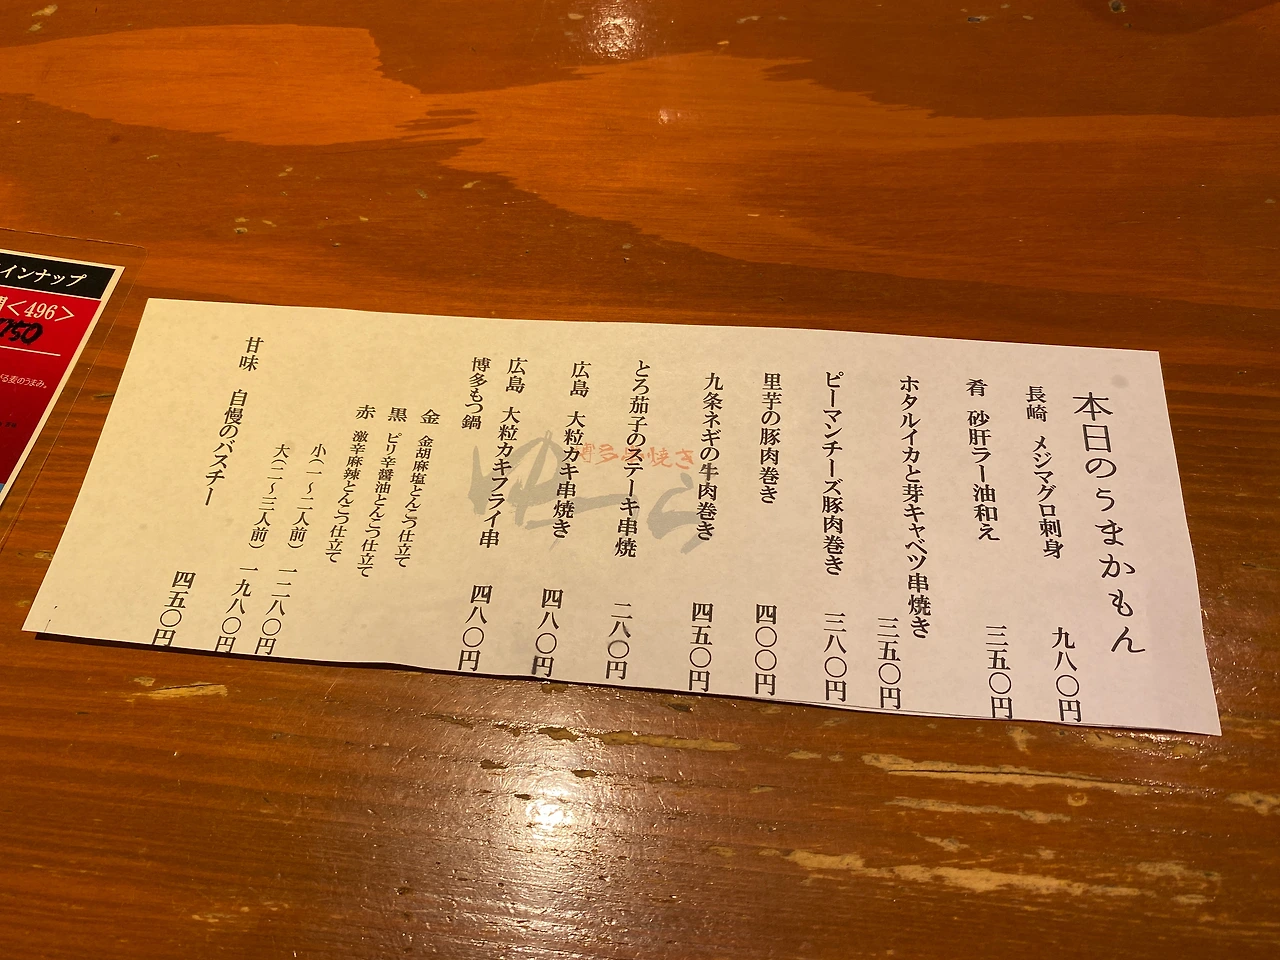 本日のうまかもん
長崎 メジマグロ刺身 九八〇円
肴 砂肝ラー油和え 三五〇円
ホタルイカと芽キャベツ串焼き 三五〇円
ピーマンチーズ豚肉巻き 三八〇円
里芋の豚肉巻き 四〇〇円
九条ネギの牛肉巻き 四五〇円
とろ茄子のステーキ串焼 二八〇円
広島 大粒カキ串焼き 四八〇円
広島 大粒カキフライ串 四八〇円
博多もつ鍋
金 金胡麻塩とんこつ仕立て
黒 ピリ辛醤油とんこつ仕立て
赤 激辛麻辣とんこつ仕立て
小(一〜二人前) 一二八〇円
大(二〜三人前) 一九八〇円
甘味 自慢のバスチー 四五〇円
博多串焼き
ゆーら
インナップ
<496>
る麦のうまみ。